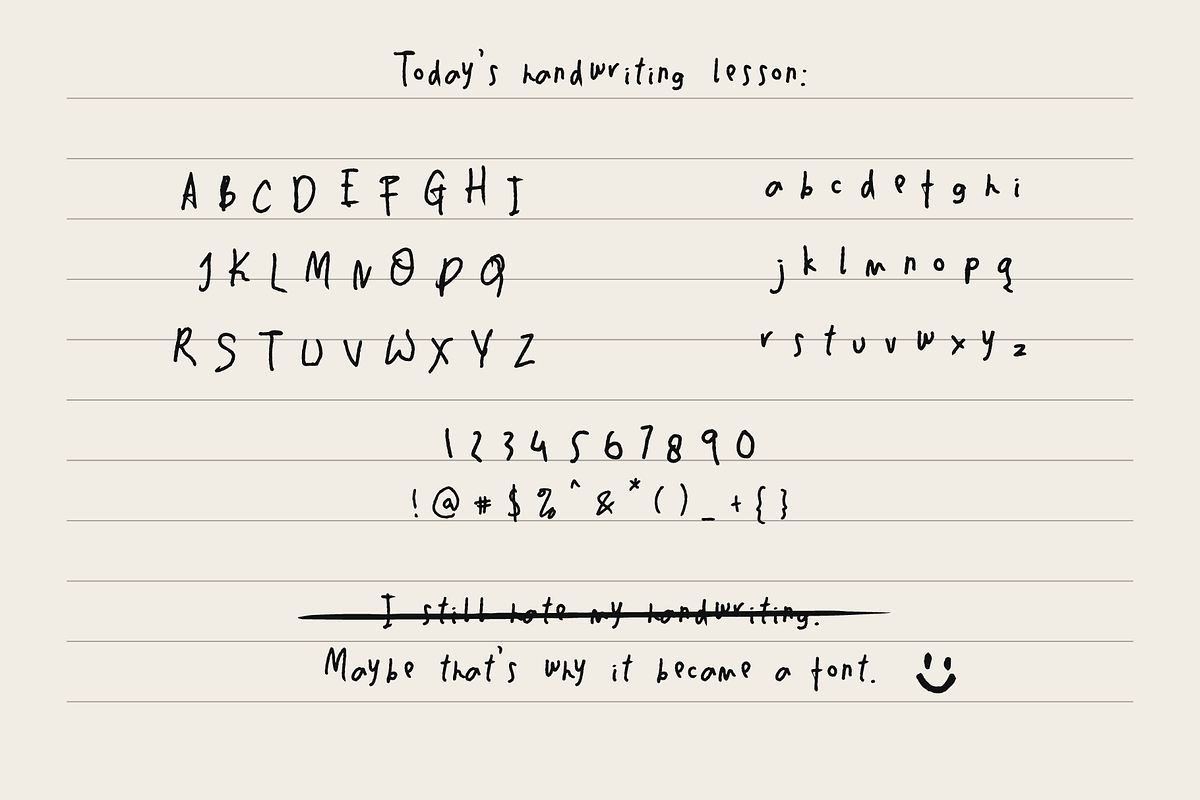 Today's handwriting lesson:
A B C D E F G H I
a b c d e f g h i
J K L M N O P Q
j k l m n o p q
R S T U V W X Y Z
r s t u v w x y z
1 2 3 4 5 6 7 8 9 0
! @ # $ % ^ & * ( ) _ + { }
I still hate my handwriting.
Maybe that's why it became a font.